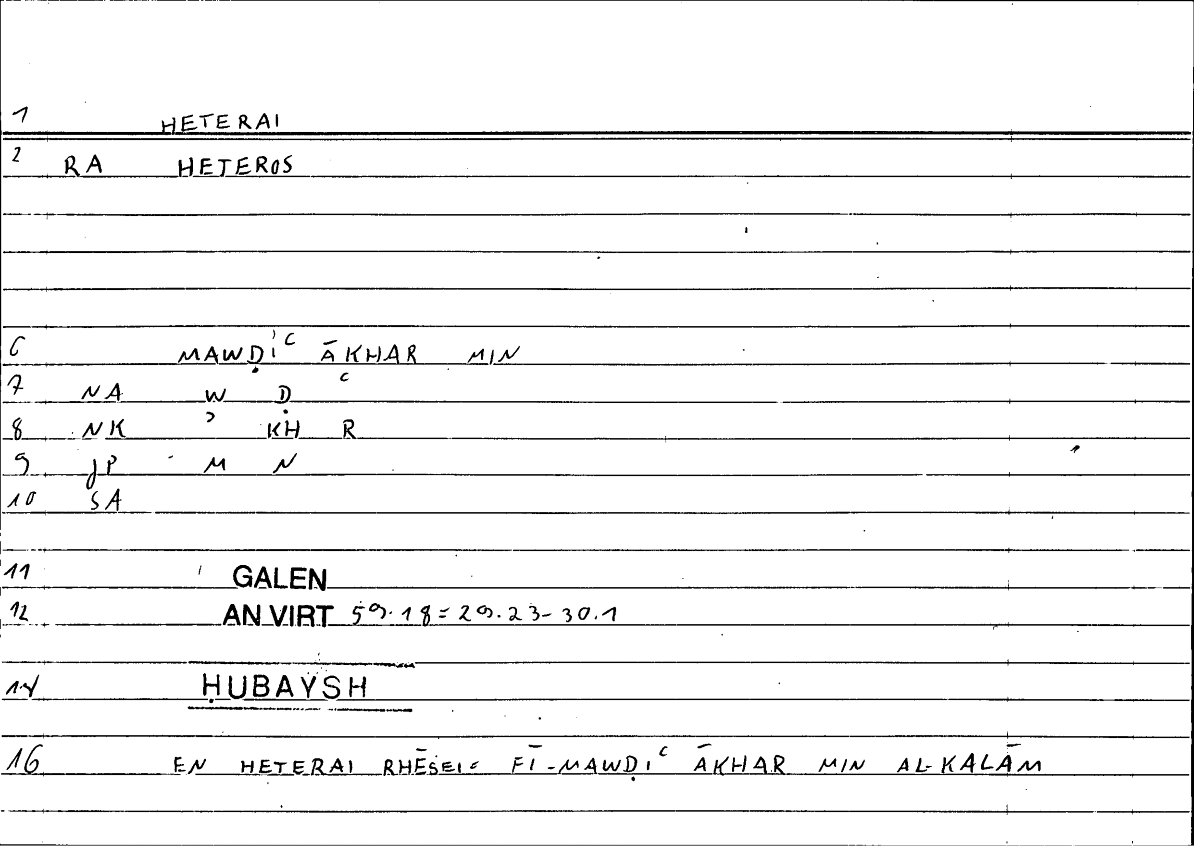 1 HETERAI
2 RA HETEROS
6 MAWḌIʿ ĀKHAR MIN
7 NA W Ḍ ʿ
8 NK ʾ KH R
9 JP M N
10 SA
11 GALEN
12 AN VIRT 59.18 = 29.23-30.1
14 ḤUBAYSH
16 EN HETERAI RHĒSEI = FĪ-MAWḌIʿ ĀKHAR MIN AL-KALĀM